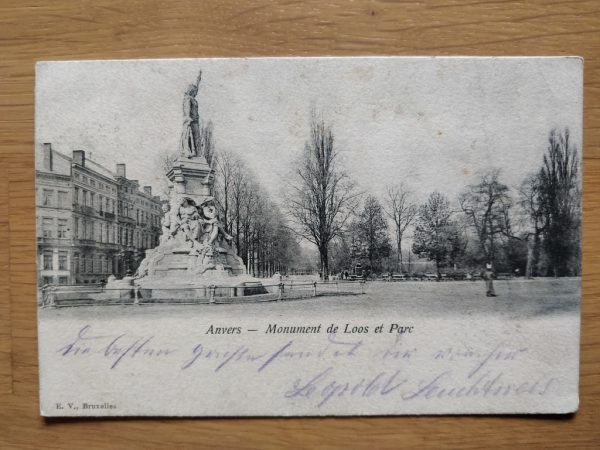 Anvers — Monument de Loos et Parc
die besten Grüsse sendet dir
Leopold
E. V., Bruxelles